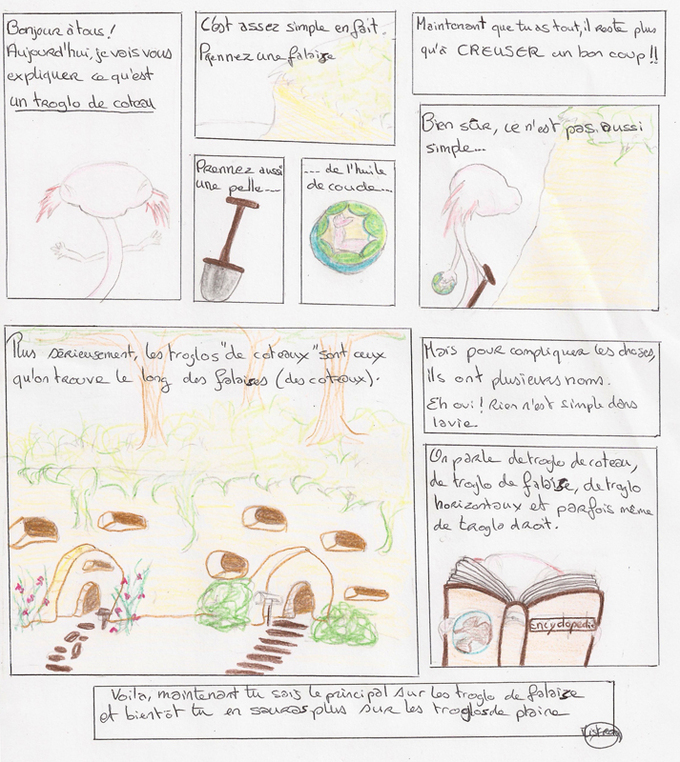 Bonjour à tous!
Aujourd'hui, je vais vous
expliquer ce qu'est
un troglo de coteau
C'est assez simple en fait.
Prennez une falaise
Prennez aussi
une pelle...
... de l'huile
de coude...
Maintenant que tu as tout, il reste plus
qu'à CREUSER un bon coup!!
Bien sûr, ce n'est pas aussi
simple...
Plus sérieusement, les troglos "de coteaux" sont ceux
qu'on trouve le long des falaises (des coteaux).
Mais pour compliquer les choses,
ils ont plusieurs noms.
Eh oui! Rien n'est simple dans
la vie.
On parle de troglo de coteau,
de troglo de falaise, de troglo
horizontaux et parfois même
de troglo droit.
Encyclopédie
Voila, maintenant tu sais le principal sur les troglo de falaise
et bientôt tu en sauras plus sur les troglos de plaine